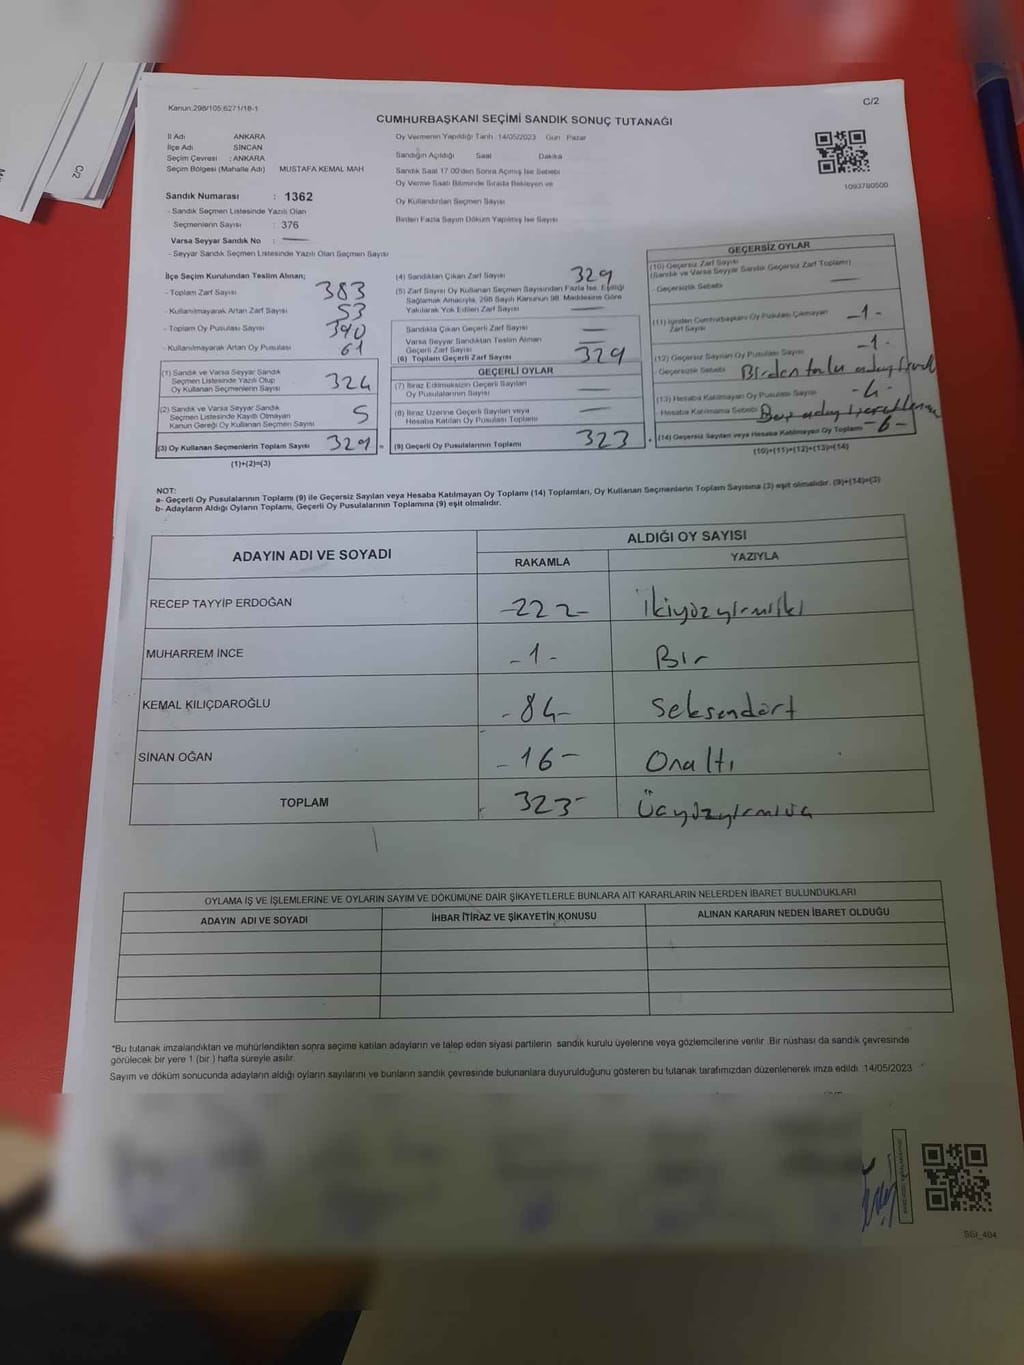 Kanun:298/105;6271/18-1
C/2
CUMHURBAŞKANI SEÇİMİ SANDIK SONUÇ TUTANAĞI
İl Adı ANKARA
İlçe Adı SİNCAN
Seçim Çevresi : ANKARA
Seçim Bölgesi (Mahalle Adı) MUSTAFA KEMAL MAH
Sandık Numarası : 1362
- Sandık Seçmen Listesinde Yazılı Olan
Seçmenlerin Sayısı : 376
Varsa Seyyar Sandık No :
- Seyyar Sandık Seçmen Listesinde Yazılı Olan Seçmen Sayısı
Oy Vermenin Yapıldığı Tarih 14/05/2023 Gün Pazar
Sandığın Açıldığı Saat Dakika
Sandık Saat 17:00'den Sonra Açılmış İse Sebebi
Oy Verme Saati Bitiminde Sırada Bekleyen ve
Oy Kullandırılan Seçmen Sayısı
Birden Fazla Sayım Döküm Yapılmış İse Sayısı
1093780500
İlçe Seçim Kurulundan Teslim Alınan;
- Toplam Zarf Sayısı 383
- Kullanılmayarak Artan Zarf Sayısı 53
- Toplam Oy Pusulası Sayısı 390
- Kullanılmayarak Artan Oy Pusulası 61
(1) Sandık ve Varsa Seyyar Sandık
Seçmen Listesinde Yazılı Olup
Oy Kullanan Seçmenlerin Sayısı 324
(2) Sandık ve Varsa Seyyar Sandık
Seçmen Listesinde Kayıtlı Olmayan
Kanun Gereği Oy Kullanan Seçmen Sayısı 5
(3) Oy Kullanan Seçmenlerin Toplam Sayısı 329 =
(1)+(2)=(3)
(4) Sandıktan Çıkan Zarf Sayısı 329
(5) Zarf Sayısı Oy Kullanan Seçmen Sayısından Fazla İse, Eşitliği
Sağlamak Amacıyla, 298 Sayılı Kanunun 98. Maddesine Göre
Yakılarak Yok Edilen Zarf Sayısı
Sandıkta Çıkan Geçerli Zarf Sayısı
Varsa Seyyar Sandıktan Teslim Alınan
Geçerli Zarf Sayısı
(6) Toplam Geçerli Zarf Sayısı 329
GEÇERLİ OYLAR
(7) İtiraz Edilmeksizin Geçerli Sayılan
Oy Pusulalarının Sayısı
(8) İtiraz Üzerine Geçerli Sayılan veya
Hesaba Katılan Oy Pusulası Toplamı
(9) Geçerli Oy Pusulalarının Toplamı 323 +
GEÇERSİZ OYLAR
(10) Geçersiz Zarf Sayısı
(Sandık ve Varsa Seyyar Sandık Geçersiz Zarf Toplamı)
- Geçersizlik Sebebi
(11) İçinden Cumhurbaşkanı Oy Pusulası Çıkmayan
Zarf Sayısı -1-
(12) Geçersiz Sayılan Oy Pusulası Sayısı -1-
- Geçersizlik Sebebi Birden fazla aday
(13) Hesaba Katılmayan Oy Pusulası Sayısı -4-
Hesaba Katılmama Sebebi
(14) Geçersiz Sayılan veya Hesaba Katılmayan Oy Toplamı -6-
(10)+(11)+(12)+(13)=(14)
NOT:
a- Geçerli Oy Pusulalarının Toplamı (9) ile Geçersiz Sayılan veya Hesaba Katılmayan Oy Toplamı (14) Toplamları, Oy Kullanan Seçmenlerin Toplam Sayısına (3) eşit olmalıdır. (9)+(14)=(3)
b- Adayların Aldığı Oyların Toplamı, Geçerli Oy Pusulalarının Toplamına (9) eşit olmalıdır.
ADAYIN ADI VE SOYADI ALDIĞI OY SAYISI
RAKAMLA YAZIYLA
RECEP TAYYİP ERDOĞAN -222- İkiyüzyirmiiki
MUHARREM İNCE -1- Bir
KEMAL KILIÇDAROĞLU -84- Seksendört
SİNAN OĞAN -16- Onaltı
TOPLAM 323- Üçyüzyirmiüç
OYLAMA İŞ VE İŞLEMLERİNE VE OYLARIN SAYIM VE DÖKÜMÜNE DAİR ŞİKAYETLERLE BUNLARA AİT KARARLARIN NELERDEN İBARET BULUNDUKLARI
ADAYIN ADI VE SOYADI İHBAR İTİRAZ VE ŞİKAYETİN KONUSU ALINAN KARARIN NEDEN İBARET OLDUĞU
*Bu tutanak imzalandıktan ve mühürlendikten sonra seçime katılan adayların ve talep eden siyasi partilerin sandık kurulu üyelerine veya gözlemcilerine verilir .Bir nüshası da sandık çevresinde
görülecek bir yere 1 (bir ) hafta süreyle asılır.
Sayım ve döküm sonucunda adayların aldığı oyların sayılarını ve bunların sandık çevresinde bulunanlara duyurulduğunu gösteren bu tutanak tarafımızdan düzenlenerek imza edildi. 14/05/2023
SGİ_404
C/2